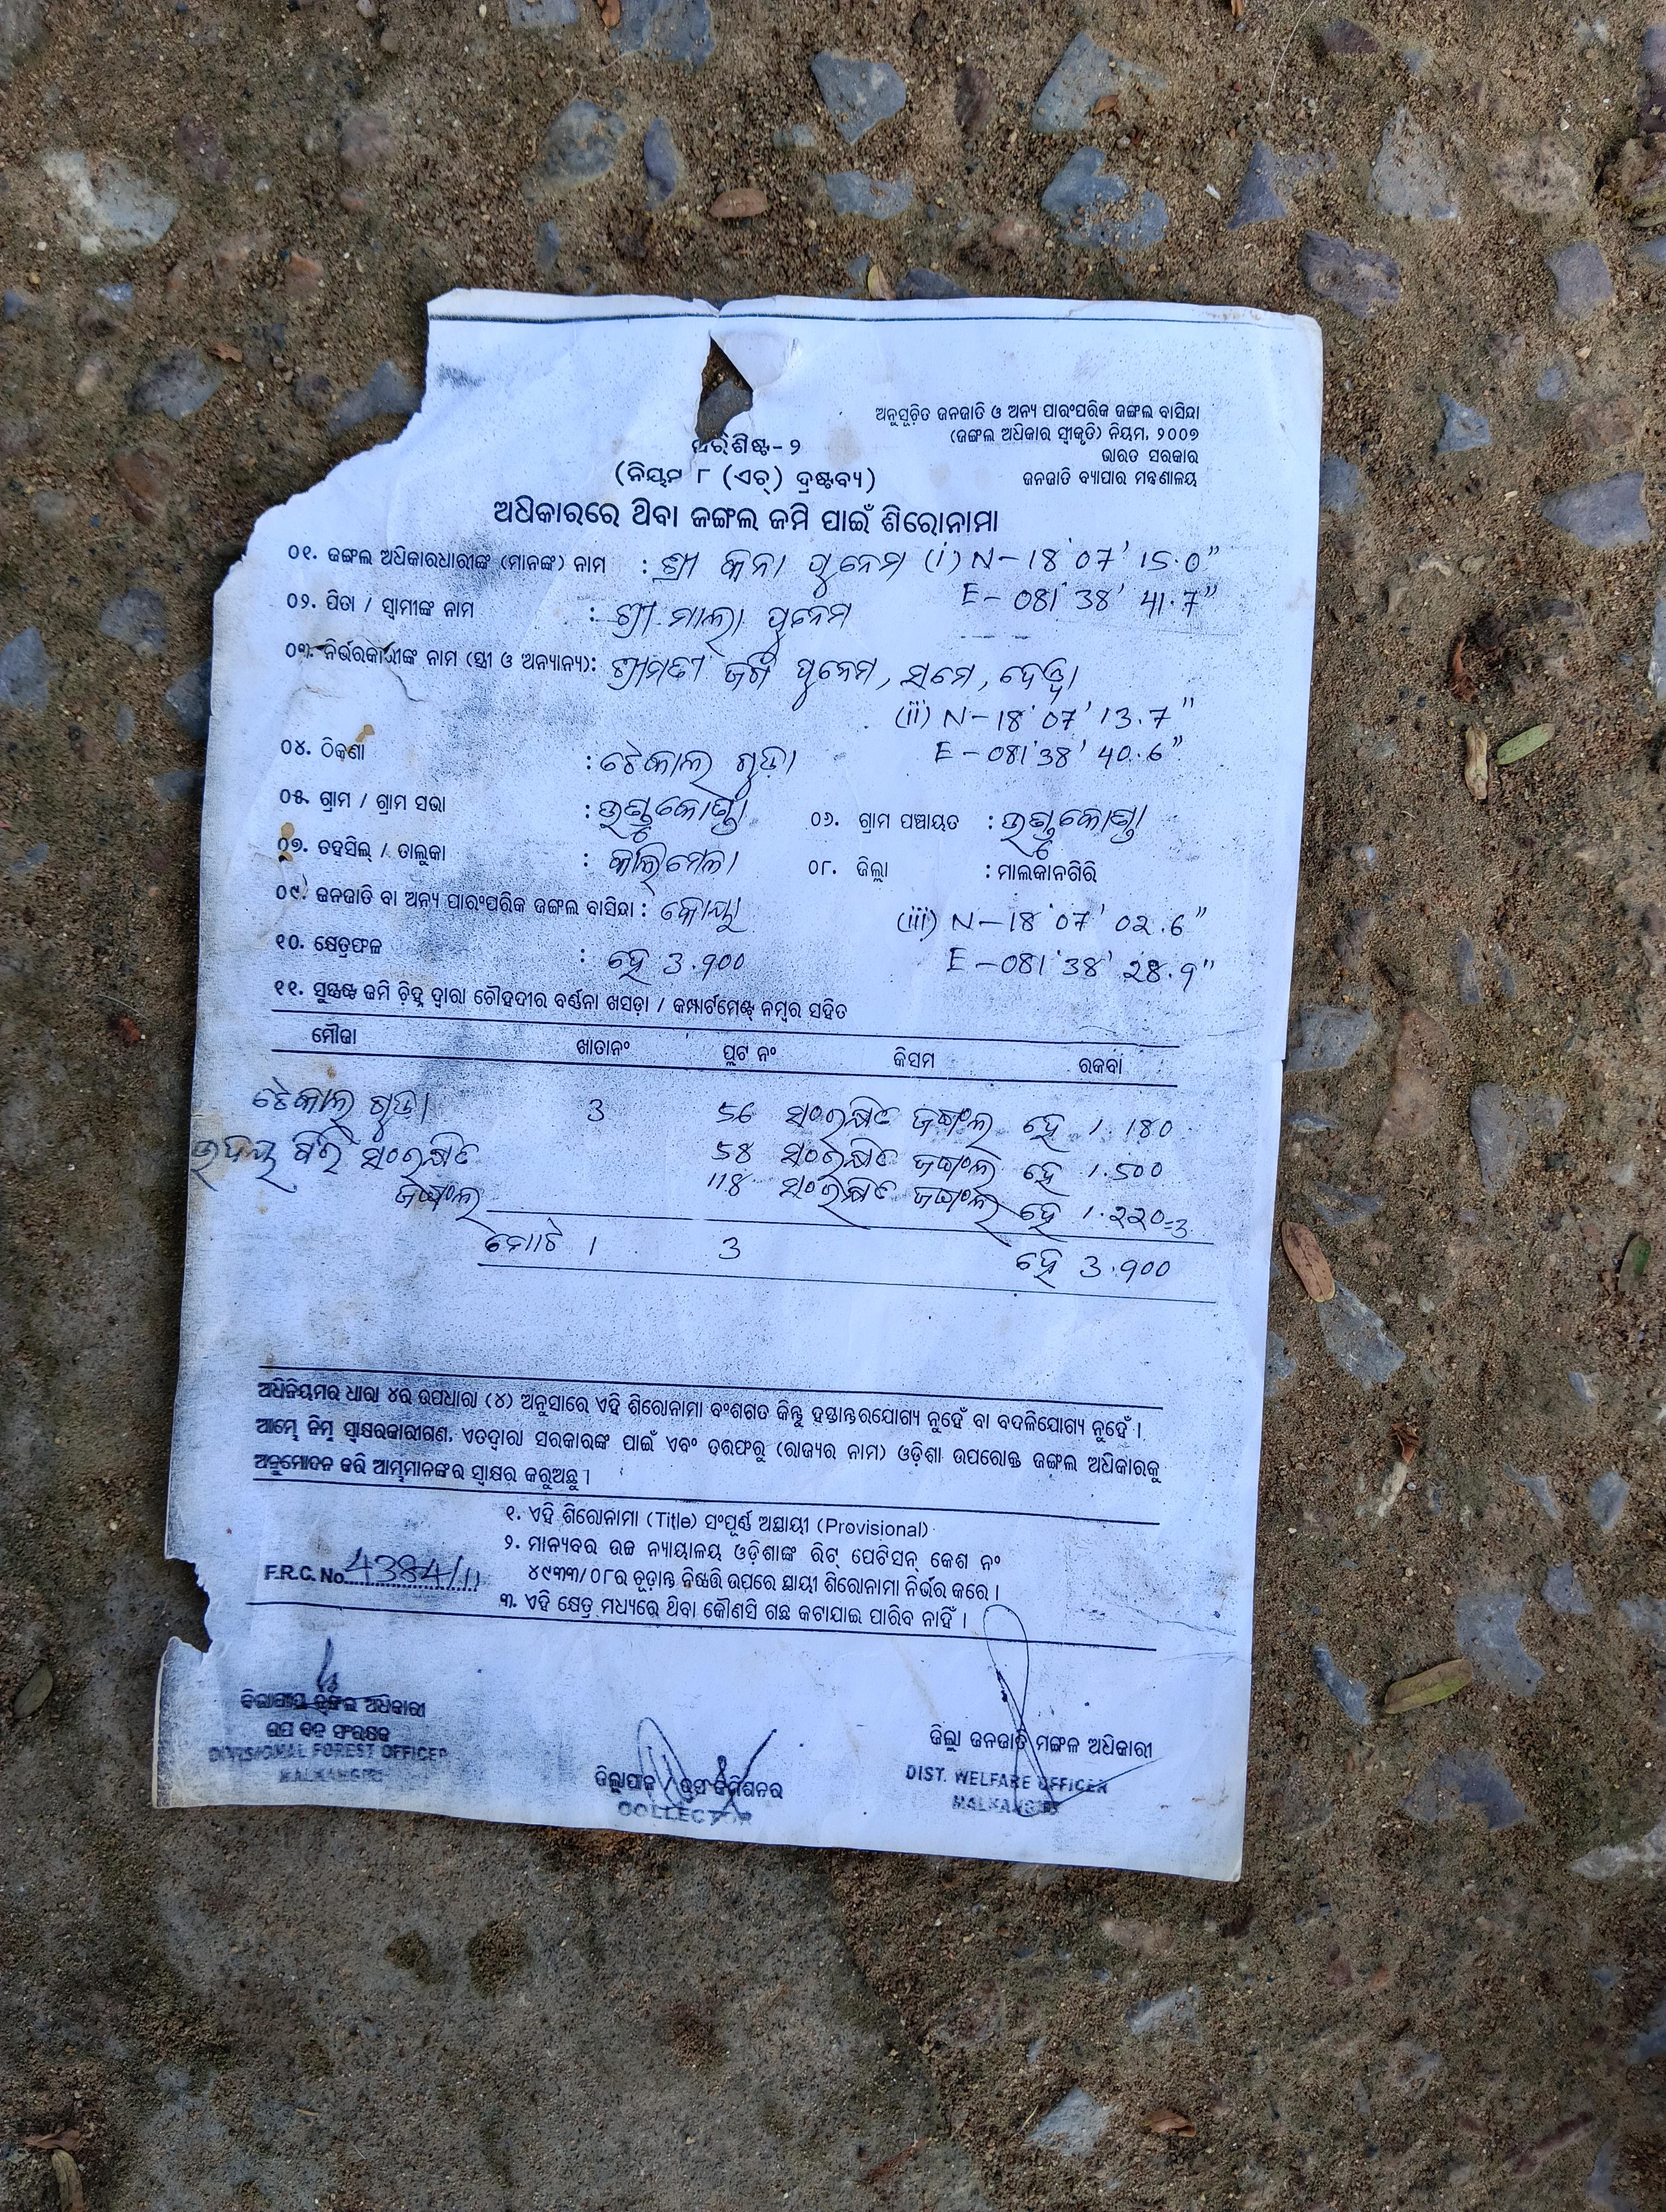 ଅନୁସୂଚିତ ଜନଜାତି ଓ ଅନ୍ୟ ପାରଂପରିକ ଜଙ୍ଗଲ ବାସିନ୍ଦା
(ଜଙ୍ଗଲ ଅଧିକାର ସ୍ୱୀକୃତି) ନିୟମ, ୨୦୦୭
ଭାରତ ସରକାର
ଜନଜାତି ବ୍ୟାପାର ମନ୍ତ୍ରଣାଳୟ
ପରିଶିଷ୍ଟ - ୨
(ନିୟମ ୮ (ଏଚ୍) ଦ୍ରଷ୍ଟବ୍ୟ)
ଅଧିକାରରେ ଥିବା ଜଙ୍ଗଲ ଜମି ପାଇଁ ଶିରୋନାମା
୦୧. ଜଙ୍ଗଲ ଅଧିକାରଧାରୀଙ୍କ (ମାନଙ୍କ) ନାମ : ଶ୍ରୀ କିନା ପୁନେମ (i) N-18°07' 15.0"
E-081°38' 41.7"
୦୨. ପିତା / ସ୍ୱାମୀଙ୍କ ନାମ : ଶ୍ରୀ ମାଲା ପୁନେମ
୦୩. ନିର୍ଭରକାରୀଙ୍କ ନାମ (ସ୍ତ୍ରୀ ଓ ଅନ୍ୟାନ୍ୟ): ଶ୍ରୀମତୀ ଜଗି ପୁନେମ, ସମେ, ଦେୱା
(ii) N-18°07' 13.7"
E-081°38' 40.6"
୦୪. ଠିକଣା : ଟେକାଲ ଗୁଡ଼ା
୦୫. ଗ୍ରାମ / ଗ୍ରାମ ସଭା : ଉଣ୍ଡୁକୋଣ୍ଡା ୦୬. ଗ୍ରାମ ପଞ୍ଚାୟତ : ଉଣ୍ଡୁକୋଣ୍ଡା
୦୭. ତହସିଲ୍ / ତାଲୁକା : କାଲିମେଳା ୦୮. ଜିଲ୍ଲା : ମାଲକାନଗିରି
୦୯. ଜନଜାତି ବା ଅନ୍ୟ ପାରଂପରିକ ଜଙ୍ଗଲ ବାସିନ୍ଦା : କୋୟା
(iii) N-18°07' 02.6"
E-081°38' 28.9"
୧୦. କ୍ଷେତ୍ରଫଳ : ହେ 3.900
୧୧. ସୁସ୍ପଷ୍ଟ ଜମି ଚିହ୍ନ ଦ୍ୱାରା ଚୌହଦୀର ବର୍ଣ୍ଣନା ଖସଡ଼ା / କମ୍ପାର୍ଟମେଣ୍ଟ ନମ୍ବର ସହିତ
ମୌଜା ଖାତାନଂ ପ୍ଲଟ ନଂ କିସମ ରକବା
ଟେକାଲ ଗୁଡ଼ା 3 56 ସଂରକ୍ଷିତ ଜଙ୍ଗଲ ହେ 1.180
ଉଦୟ ଗିରି ସଂରକ୍ଷିତ 58 ସଂରକ୍ଷିତ ଜଙ୍ଗଲ ହେ 1.500
ଜଙ୍ଗଲ 118 ସଂରକ୍ଷିତ ଜଙ୍ଗଲ ହେ 1.220=3
ମୋଟ 1 3 ହେ 3.900
ଅଧିନିୟମର ଧାରା ୪ର ଉପଧାରା (୪) ଅନୁସାରେ ଏହି ଶିରୋନାମା ବଂଶଗତ କିନ୍ତୁ ହସ୍ତାନ୍ତରଯୋଗ୍ୟ ନୁହେଁ ବା ବଦଳିଯୋଗ୍ୟ ନୁହେଁ ।
ଆମ୍ଭେ ନିମ୍ନ ସ୍ୱାକ୍ଷରକାରୀଗଣ, ଏତଦ୍ୱାରା ସରକାରଙ୍କ ପାଇଁ ଏବଂ ତରଫରୁ (ରାଜ୍ୟର ନାମ) ଓଡ଼ିଶା ଉପରୋକ୍ତ ଜଙ୍ଗଲ ଅଧିକାରକୁ
ଅନୁମୋଦନ କରି ଆମ୍ଭମାନଙ୍କର ସ୍ୱାକ୍ଷର କରୁଅଛୁ ।
୧. ଏହି ଶିରୋନାମା (Title) ସଂପୂର୍ଣ୍ଣ ଅସ୍ଥାୟୀ (Provisional)
୨. ମାନ୍ୟବର ଉଚ୍ଚ ନ୍ୟାୟାଳୟ ଓଡ଼ିଶାଙ୍କ ରିଟ୍ ପେଟିସନ୍ କେଶ ନଂ
୪୯୩୩/୦୮ର ଚୂଡ଼ାନ୍ତ ନିଷ୍ପତ୍ତି ଉପରେ ସ୍ଥାୟୀ ଶିରୋନାମା ନିର୍ଭର କରେ ।
F.R.C. No. 4384/11
୩. ଏହି କ୍ଷେତ୍ର ମଧ୍ୟରେ ଥିବା କୌଣସି ଗଛ କଟାଯାଇ ପାରିବ ନାହିଁ ।
ବିଭାଗୀୟ ଜଙ୍ଗଲ ଅଧିକାରୀ
ଉପ ବନ ସଂରକ୍ଷକ
DIVISIONAL FOREST OFFICER
MALKANGIRI
ଜିଲ୍ଲାପାଳ / ଉପ କମିଶନର
COLLECTOR
ଜିଲ୍ଲା ଜନଜାତି ମଙ୍ଗଳ ଅଧିକାରୀ
DIST. WELFARE OFFICER
MALKANGIRI